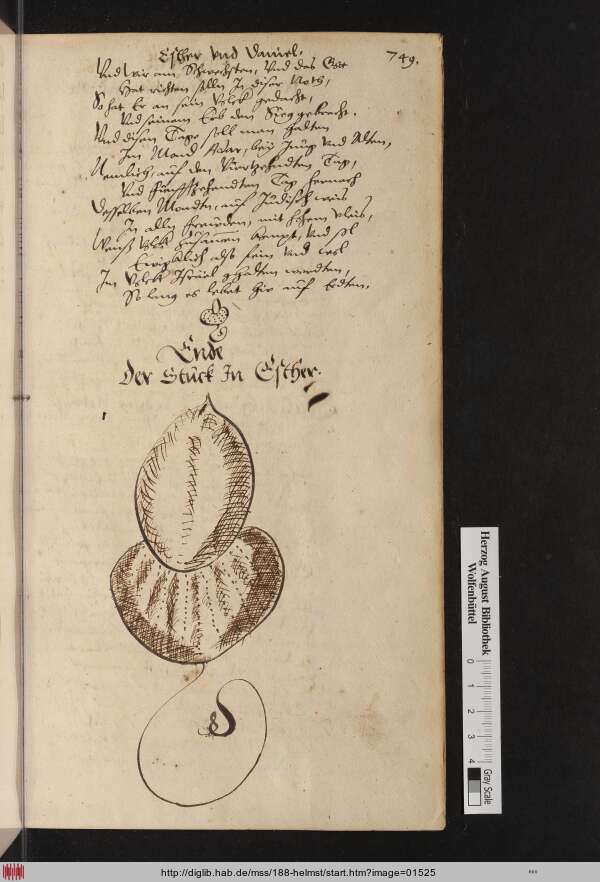 Esther und Daniel. 749.
Und wir am Schwechsten, Und das Gott
Hat richten selln In diser Noth,
So hat Er an sein Volck gedacht,
Und seinem Erb den Sieg gebracht.
Und disen Tage soll man halten
Im Monat Adar, bey Jung und Alten,
Nemlich, auf den Vierzehendten Tag,
Und funffzehendten Tag, hernach
Desselben Monats, auf Jüdisch weis
In allen freuden, mit hohem vleis,
Wenns Volck zusamen kompt, und sol
Ewigklich also sein und wol
Im Volck Israel gehalten werden,
So lang es lebet hie auf Erden.
Ende
Der Stück In Esther.
Herzog August Bibliothek
Wolfenbüttel
0 1 2 3 4
Gray Scale
http://diglib.hab.de/mss/188-helmst/start.htm?image=01525